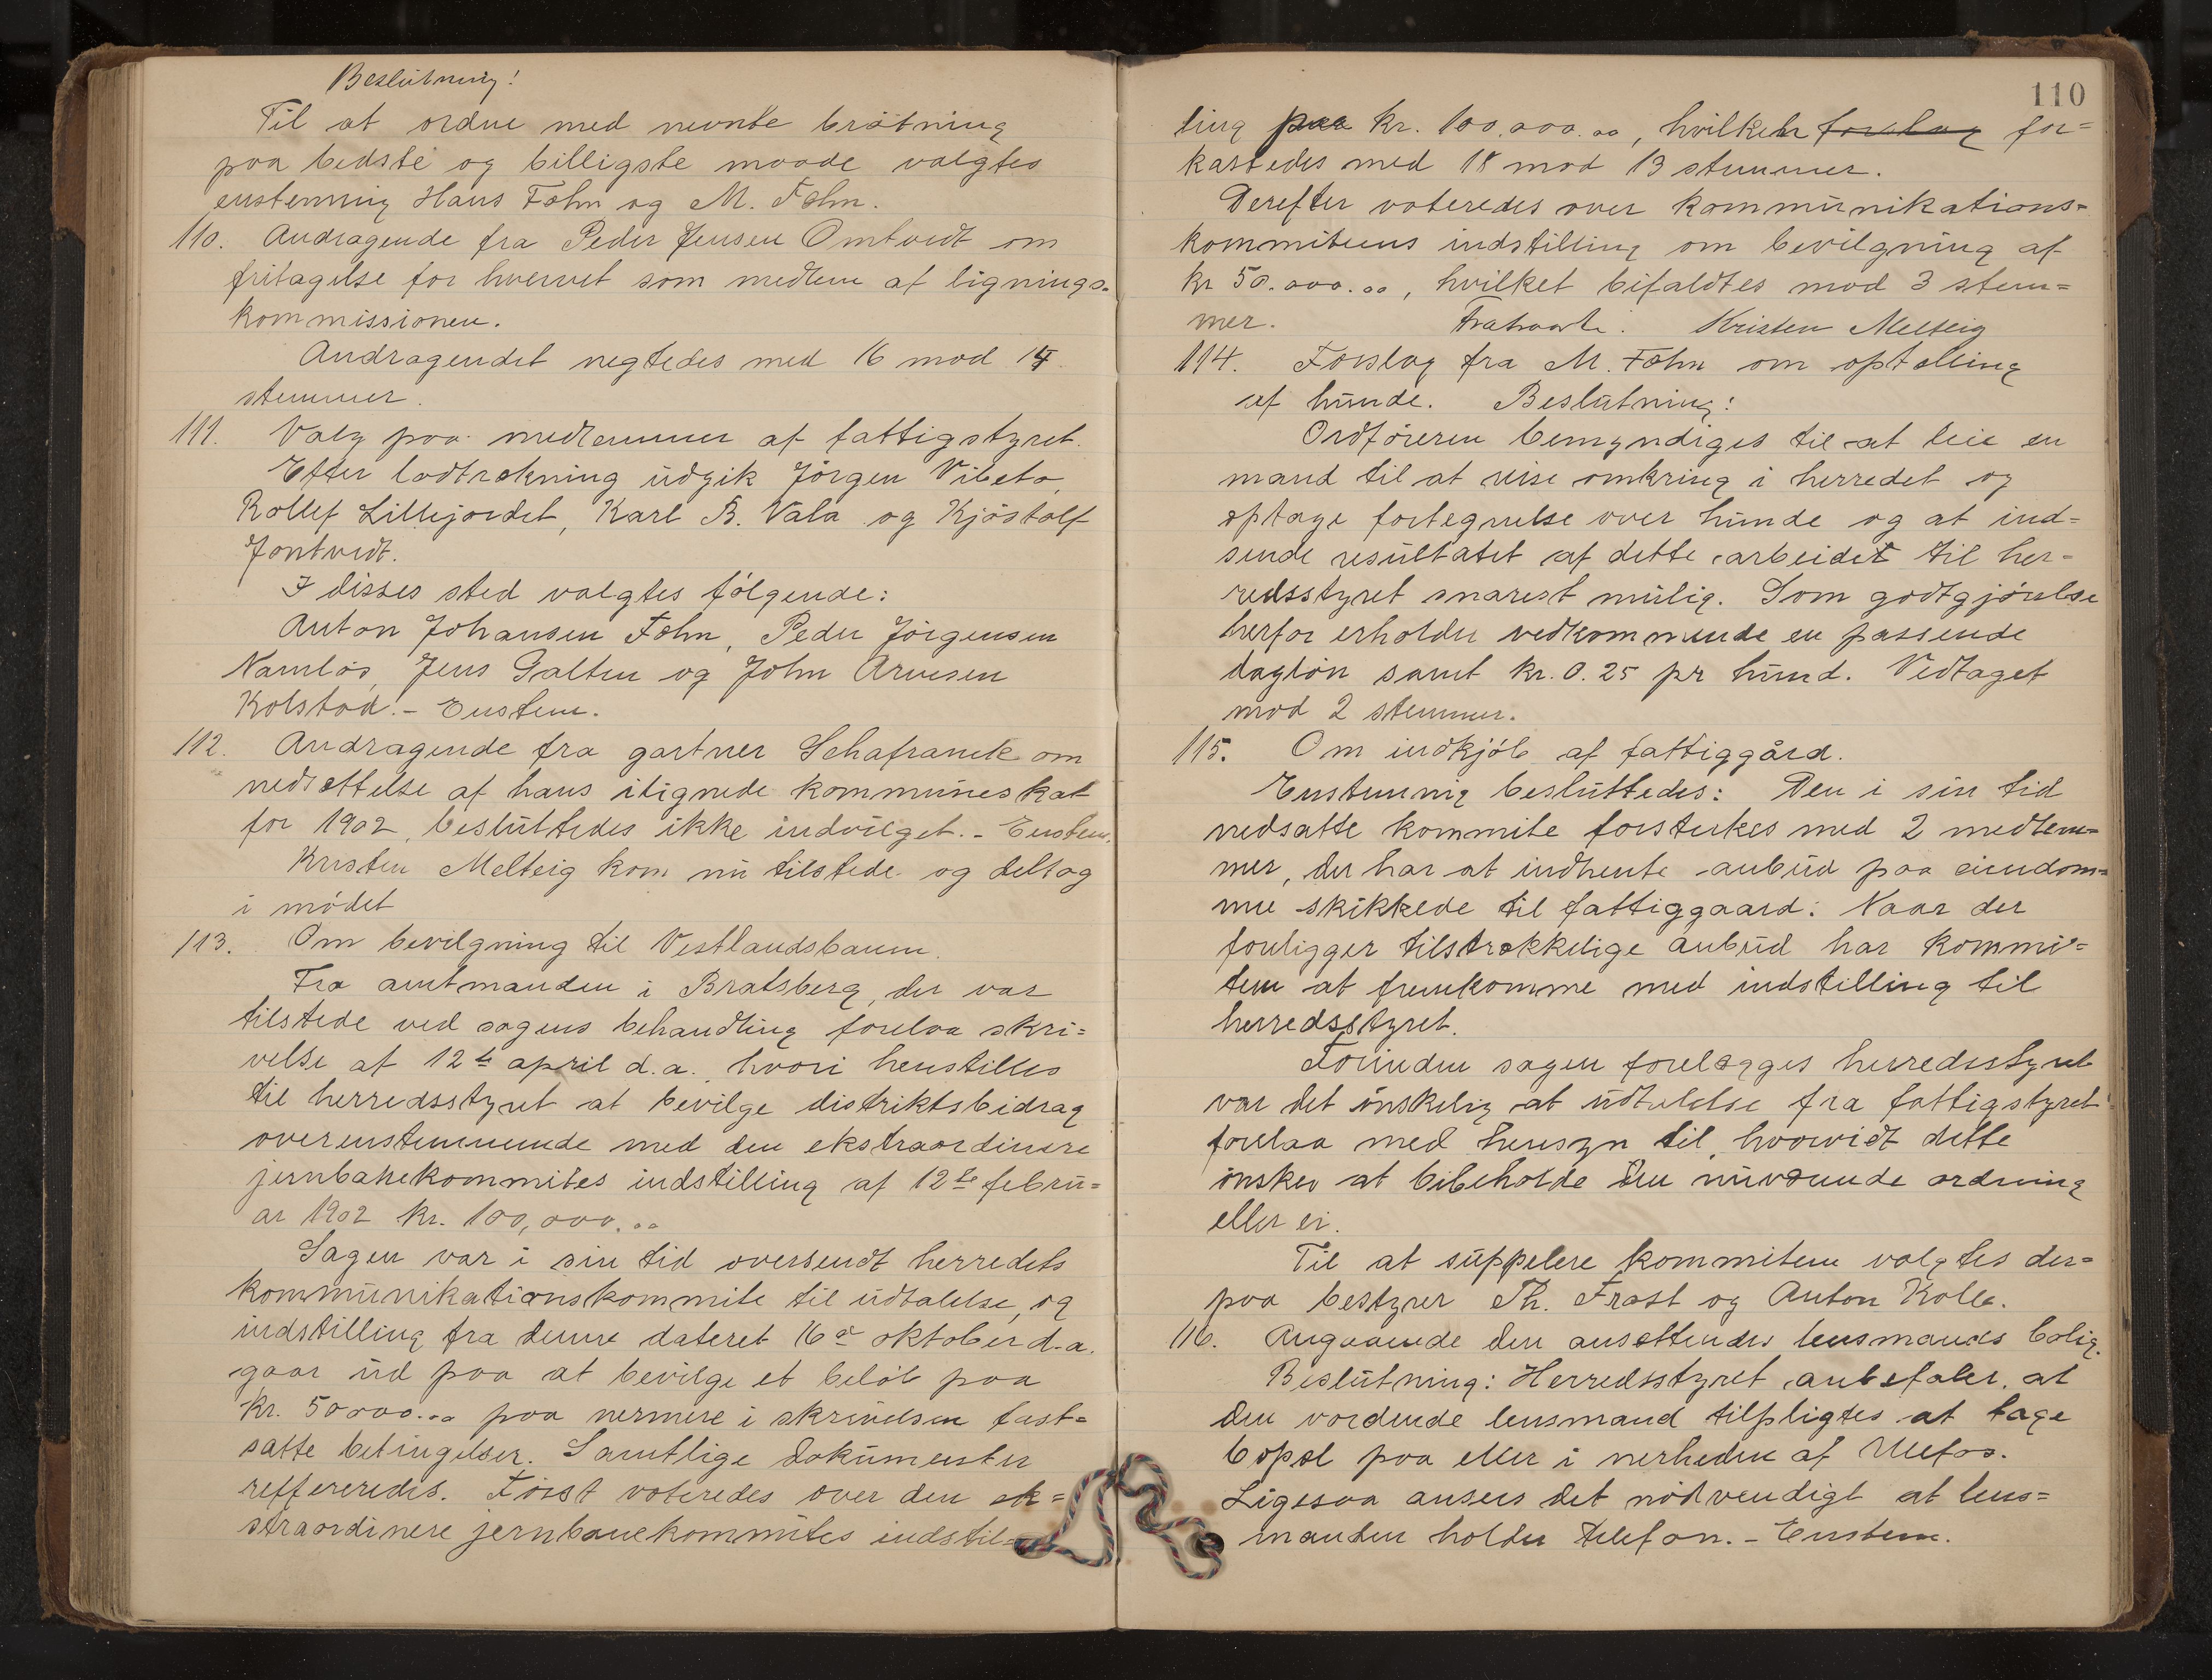 Beslutning!
Til at ordne med nevnte brötning
paa bedste og billigste maade valgtes
enstemmig Hans Fahn og M. Fahn.
110. Andragende fra Peder Jensen Omtvedt om
fritagelse for hvervet som medlem af lignings-
kommissionen.
Andragendet negtedes med 16 mod 14
stemmer.
111. Valg paa medlemmer af fattigstyret.
Efter lodtrækning udgik Jörgen Vibeto,
Rollef Lillejordet, Karl B. Vala og Kjöstolf
Jontvedt.
I disses sted valgtes följgende:
Anton Johansen Fahn, Peder Jörgensen
Namlös, Jens Galten og John Arvesen
Kolstad. - Enstem.
112. Andragende fra gartner Schafranek om
nedsættelse af hans ilignede kommuneskat
for 1902, besluttedes ikke indvilget. - Enstem.
Kristen Melteig kom nu tilstede og deltog
i mödet
113. Om bevilgning til Vestlandsbanen.
Fra amtmanden i Bratsberg, der var
tilstede ved sagens behandling forelaa skri=
velse af 12te april d.a., hvori henstilles
til herredsstyret at bevilge distriktsbidrag
overenstemmende med den ekstraordinære
jernbanekommites indstilling af 12te febru=
ar 1902 kr. 100,000.00
Sagen var i sin tid oversendt herredets
kommunikationskommite til udtalelse, og
indstilling fra denne dateret 16de oktober d.a.
gaar ud paa at bevilge et belöb paa
kr. 50000.00 paa nermere i skrivelsen fast=
satte betingelser. Samtlige dokumenter
reffereredes. Först voteredes over den ek=
straordinere jernbanekommites indstil=
110
ling paa kr. 100.000.00, hvilken forslag for=
kastedes med 18 mod 13 stemmer.
Derefter voteredes over kommunikations=
kommiteens indstilling om bevilgning af
kr 50.000.00, hvilket bifaldtes mod 3 stem=
mer. Kristen Melteig
114. Forslag fra M. Fahn om optælling
af hunde. Beslutning:
Ordföreren bemyndiges til at leie en
mand til at reise omkring i herredet og
optage fortegnelse over hunde og at ind=
sende resultatet af dette arbeidet til her=
redsstyret snarest mulig. Som godtgjörelse
herfor erholder vedkommende en passende
daglön samt kr. 0.25 pr hund. Vedtaget
mod 2 stemmer.
115. Om indkjöb af fattiggård.
Enstemmig besluttedes: Den i sin tid
nedsatte kommite forsterkes med 2 medlem=
mer, der har at indhente anbud paa eiendom=
me skikkede til fattiggaard. Naar der
foreligger tilstrækkelige anbud har kommi=
teen at fremkomme med indstilling til
herredsstyret.
Forinden sagen forelægges herredsstyret
var det önskelig at udtalelse fra fattigstyret
forelaa med hensyn til, hvorvidt dette
önsker at bibeholde den nuværende ordning
eller ei.
Til at suppelere kommiteen valgtes der=
paa bestyrer Th. Frost og Anton Kolle.
116. Angaaende den ansættendes lensmands bolig.
Beslutning: Herredsstyret anbefaler, at
den vordende lensmand tilpligtes at tage
bopæl paa eller i nerheden af Ulefos.
Ligesaa ansees det nödvendigt at lens=
manden holder telefon. - Enstem.